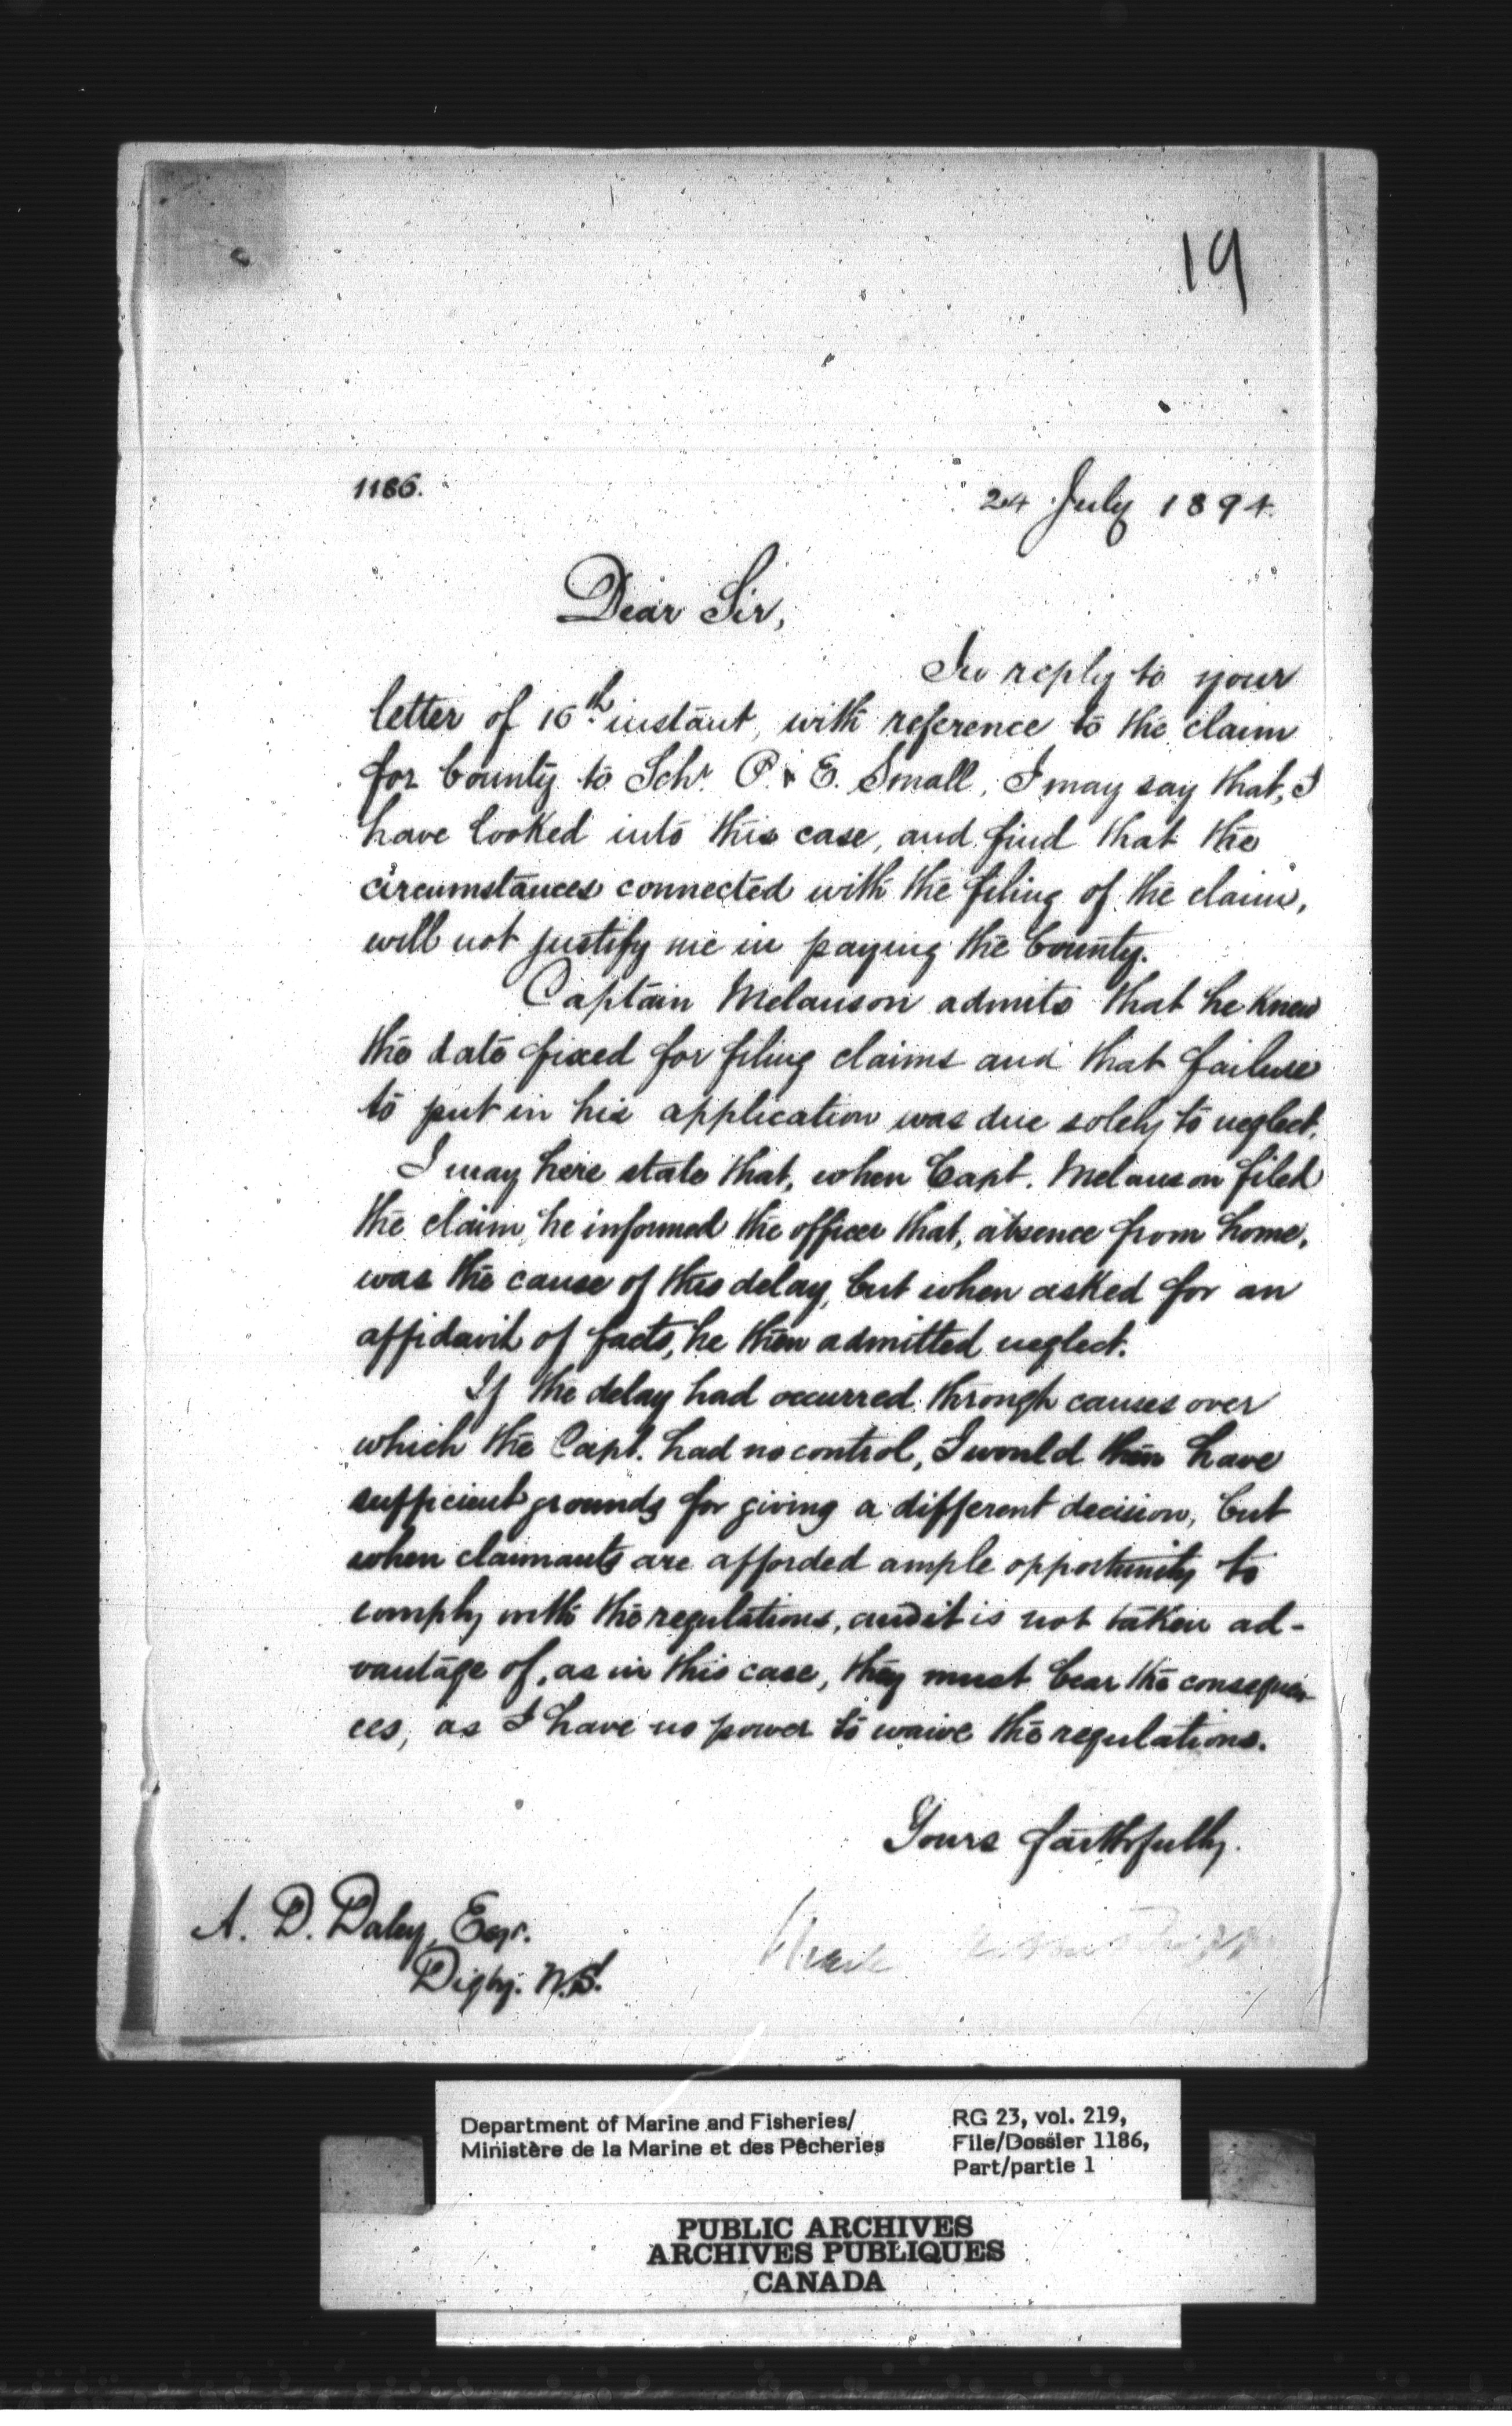 19
1186.
24 July 1894.
Dear Sir,
In reply to your
letter of 16th instant, with reference to the claim
for bounty to Schr. P. & E. Small, I may say that, I
have looked into this case, and find that the
circumstances connected with the filing of the claim,
will not justify me in paying the bounty.
Captain Melanson admits that he knew
the date fixed for filing claims and that failure
to put in his application was due solely to neglect.
I may here state that, when Capt. Melanson filed
the claim, he informed the officer that, absence from home,
was the cause of this delay, but when asked for an
affidavit of facts, he then admitted neglect.
If the delay had occurred through causes over
which the Capt. had no control, I would then have
sufficient grounds for giving a different decision, but
when claimants are afforded ample opportunity to
comply with the regulations, and it is not taken ad-
vantage of, as in this case, they must bear the consequen-
ces, as I have no power to waive the regulations.
Yours faithfully.
A. D. Daley, Esqr.
Digby. N.S.
Department of Marine and Fisheries/
Ministère de la Marine et des Pêcheries
RG 23, vol. 219,
File/Dossier 1186,
Part/partie 1
PUBLIC ARCHIVES
ARCHIVES PUBLIQUES
CANADA